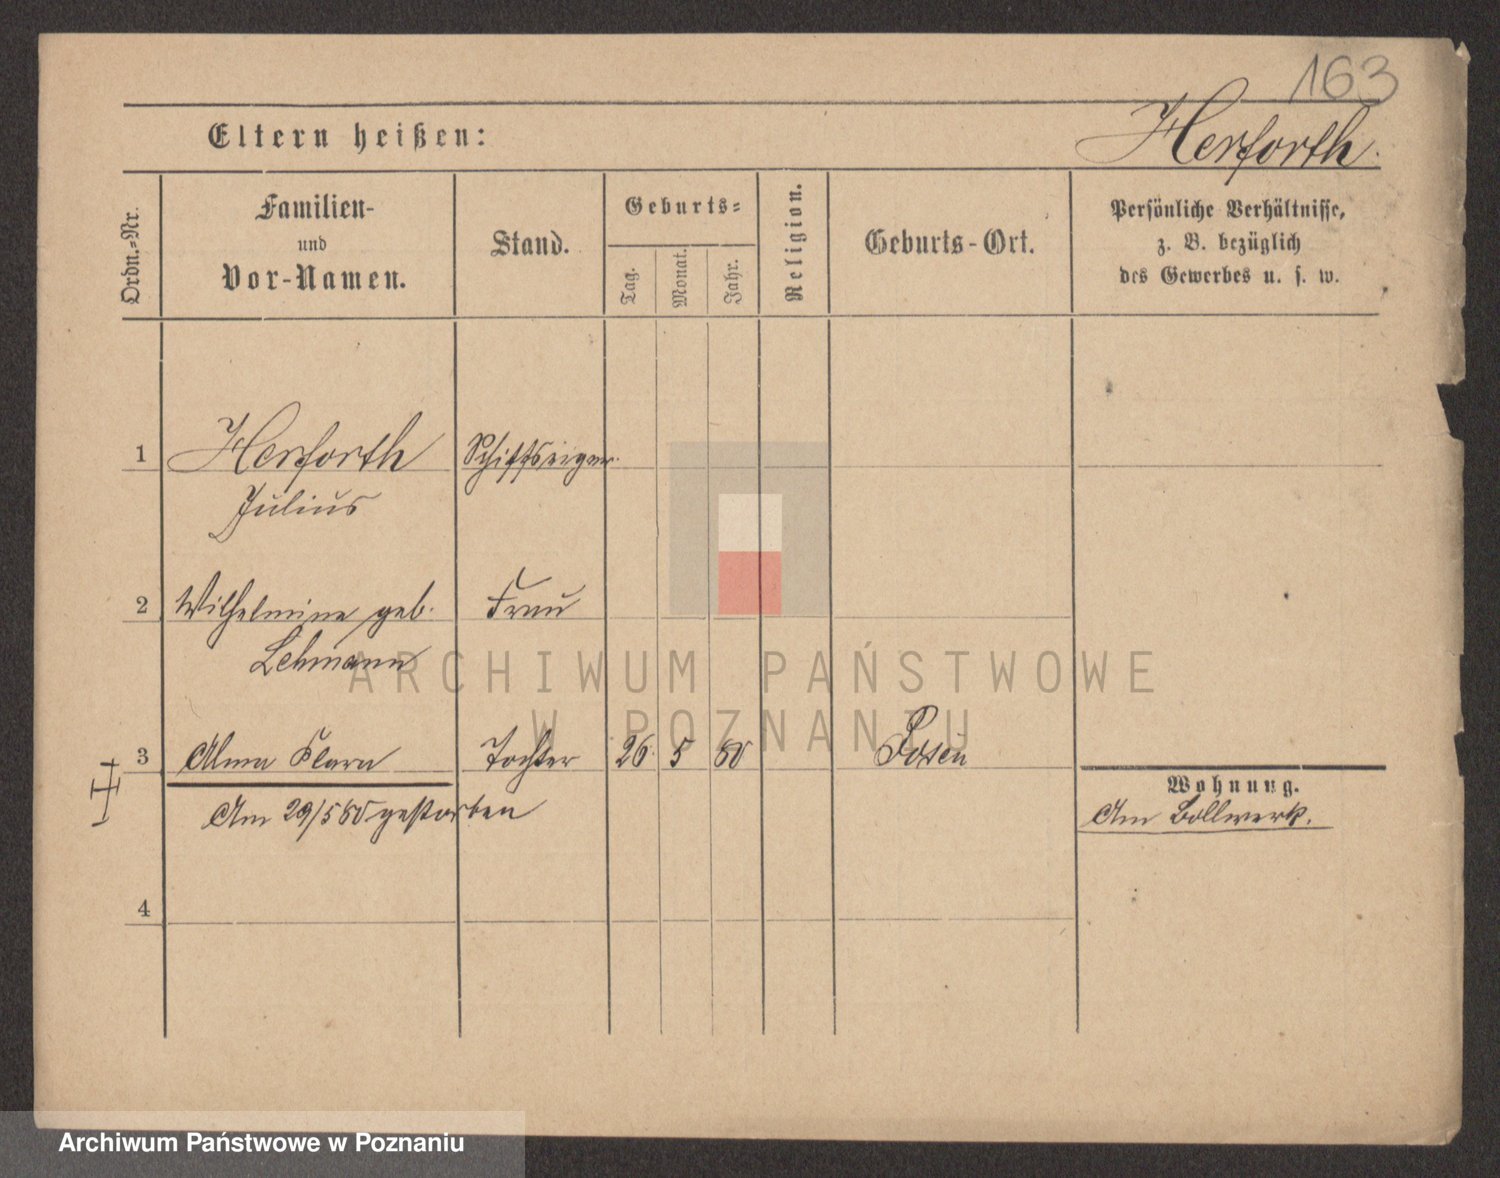 163
Eltern heißen:
Herforth.
Ordn.-Nr.
Familien-
und
Vor-Namen.
Stand.
Geburts-
Tag.
Monat.
Jahr.
Religion.
Geburts-Ort.
Persönliche Verhältnisse,
z. B. bezüglich
des Gewerbes u. s. w.
1 Herforth Schiffseigner
Julius
2 Wilhelmine geb. Frau
Lehmann
3 Alma Klara Tochter 26. 5 80 Posen
Am 29/5 80 gestorben
Wohnung.
Am Bollwerk.
4
ARCHIWUM PAŃSTWOWE
W POZNANIU
Archiwum Państwowe w Poznaniu